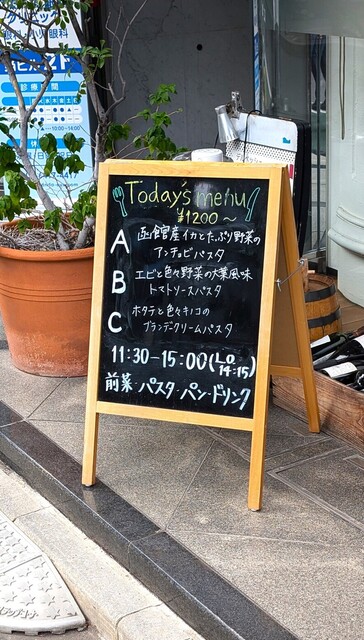 Today's menu
¥1200〜
A 函館産イカとたっぷり野菜の
アンチョビパスタ
B エビと色々野菜の大葉風味
トマトソースパスタ
C ホタテと色々キノコの
ブランデークリームパスタ
11:30-15:00(LO 14:15)
前菜・パスタ・パン・ドリンク